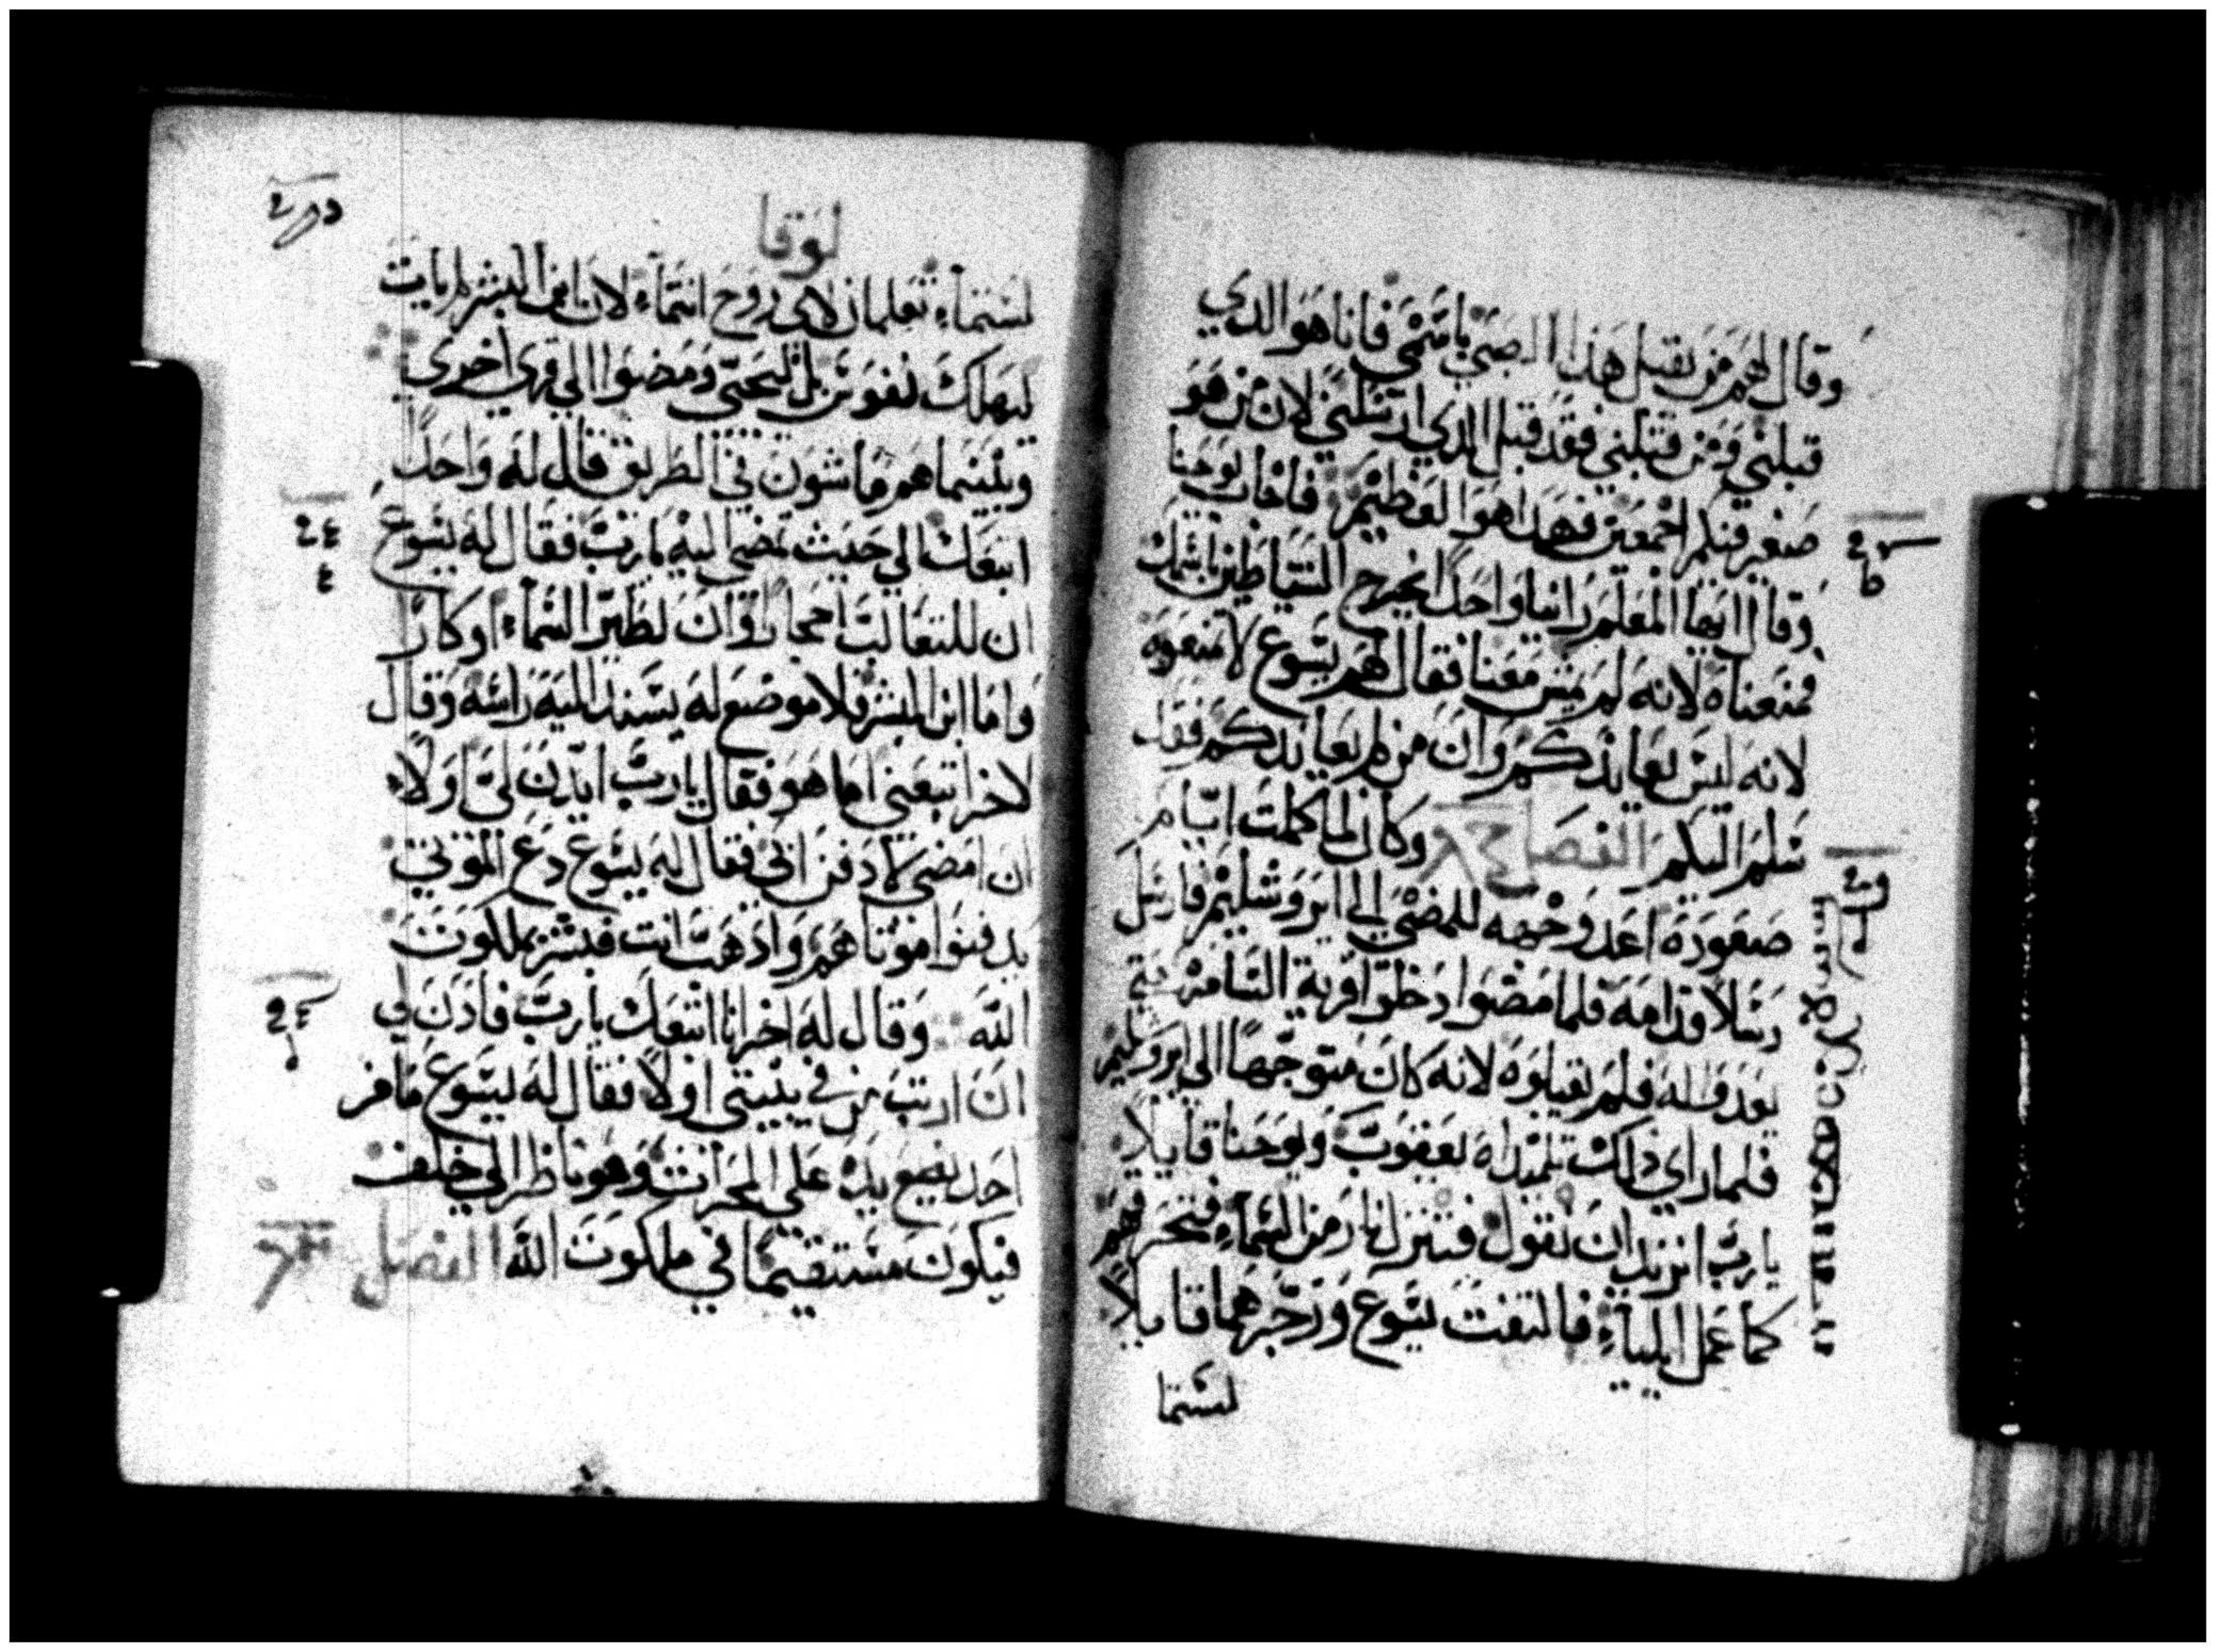 وقال لهم من يقبل هذا الصبي باسمي فانا هو الدي
قبلني ومن قبلني فقد قبل الدي ارسلني لان من هو
صغير فيكم اجمعين فهدا هو العظيم فاجاب يوحنا
وقال ايها المعلم راينا واحدًا يخرج الشياطين باسمك
فمنعناه لانه لم يمش معنا فقال لهم يسوع لا تمنعوه
لانه ليس يعاندكم وان من لم يعاندكم فقد
سلم اليكم الفصل وكان لما كملت ايام
صعوده اعد وجهه للمضي الى ايروشليم فارسل
رسلاً قدامه فلما مضوا دخلوا قرية السامرة حتى
يعدوا له فلم يقبلوه لانه كان متوجهاً الي ايروشليم
فلما راي دلك تلميداه يعقوب ويوحنا قايلا
يارب اتريد ان نقول فتنزل نار من السماء فتحرقهم
كما عمل ايلياء فالتفت يسوع وزجرهما قايلاً
لستما
لوقا
لستماء تعلمان لاى روح انتماء لان ابن البشر لم يات
ليهلك نفوس بل ليحيي ومضوا الي قري اخري
وبينما هم ماشون في الطريق قال له واحدًا
اتبعك الي حيث تمضي اليه يا رب فقال له يسوع
ان للتعالب احجارًا وان لطير السماء اوكارًا
واما ابن البشر فلا موضع له يسند اليه راسه وقال
لاخر اتبعني اما هو فقال يا رب ايدن لي اولاً
ان امضي لادفن ابي فقال له يسوع دع الموتي
يدفنوا موتاهم وادهب انت فبشر بملكوت
الله وقال له اخر انا اتبعك يا رب فادن لي
ان ارتب من في بيتي اولًا فقال له يسوع ما من
احد يضع يده على المحرات وهو ناظر الي خلف
فيكون مستقيمًا في ملكوت الله الفصل